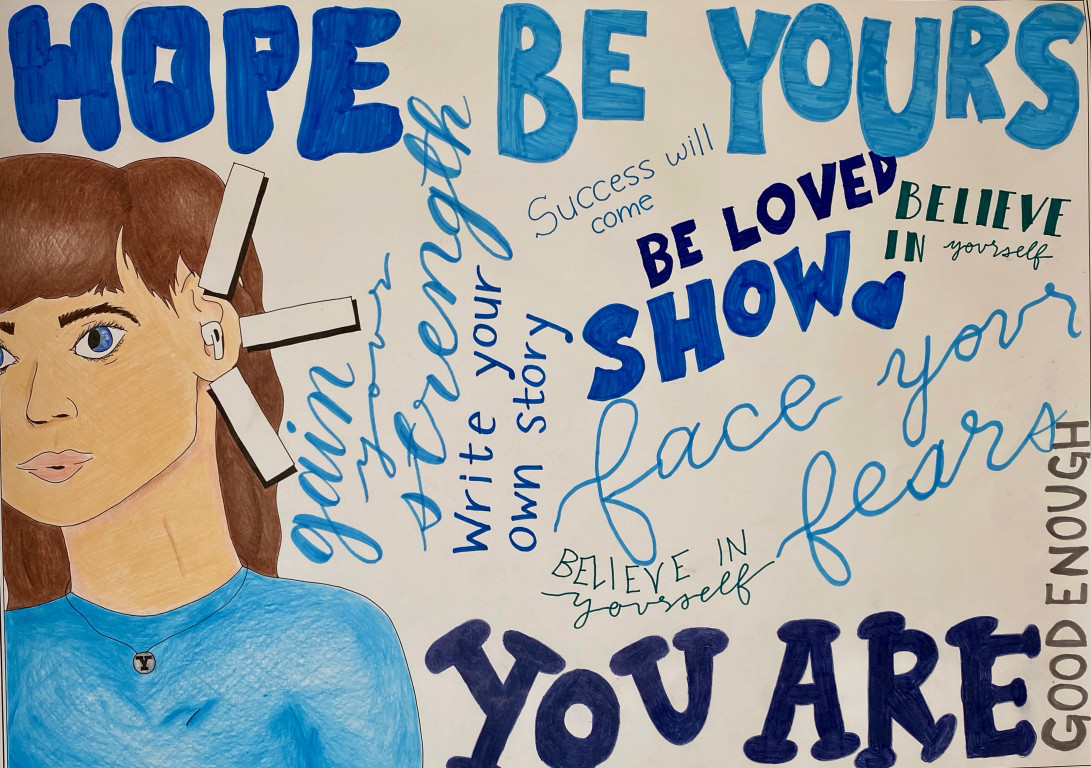 HOPE
BE YOURS
Success will
come
BE LOVED
BELIEVE
IN yourself
SHOW
gain
your
strength
Write your
own story
face your
fears
BELIEVE IN
yourself
YOU ARE
GOOD ENOUGH
Y